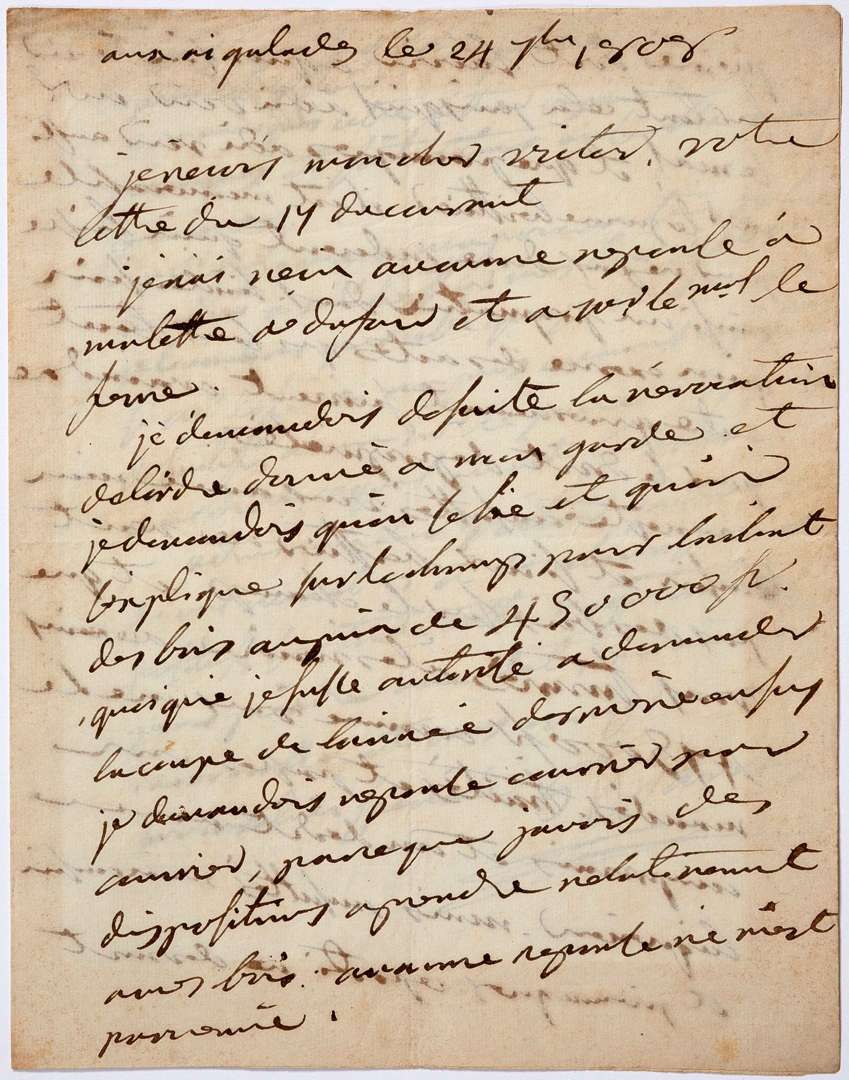 aux aigalades le 24 7bre 1808
je recois mon cher victor, votre
lettre du 17 du courant
je nai recu aucune reponse à
ma lettre de dufour et a
je demandois desuite la révocation
delordre donné a mon garde et
je demandois quon et quon
sexplique surlechamp pour lachat
des bois au prix de 450000 fr.
quoique je fusse autorisé a demander
la coupe de lannée derniere ensus
je demandois reponse courrier par
courrier, parceque javois des
dispositions aprendre relativement
a mes bois. aucune reponse ne mest
parvenue.